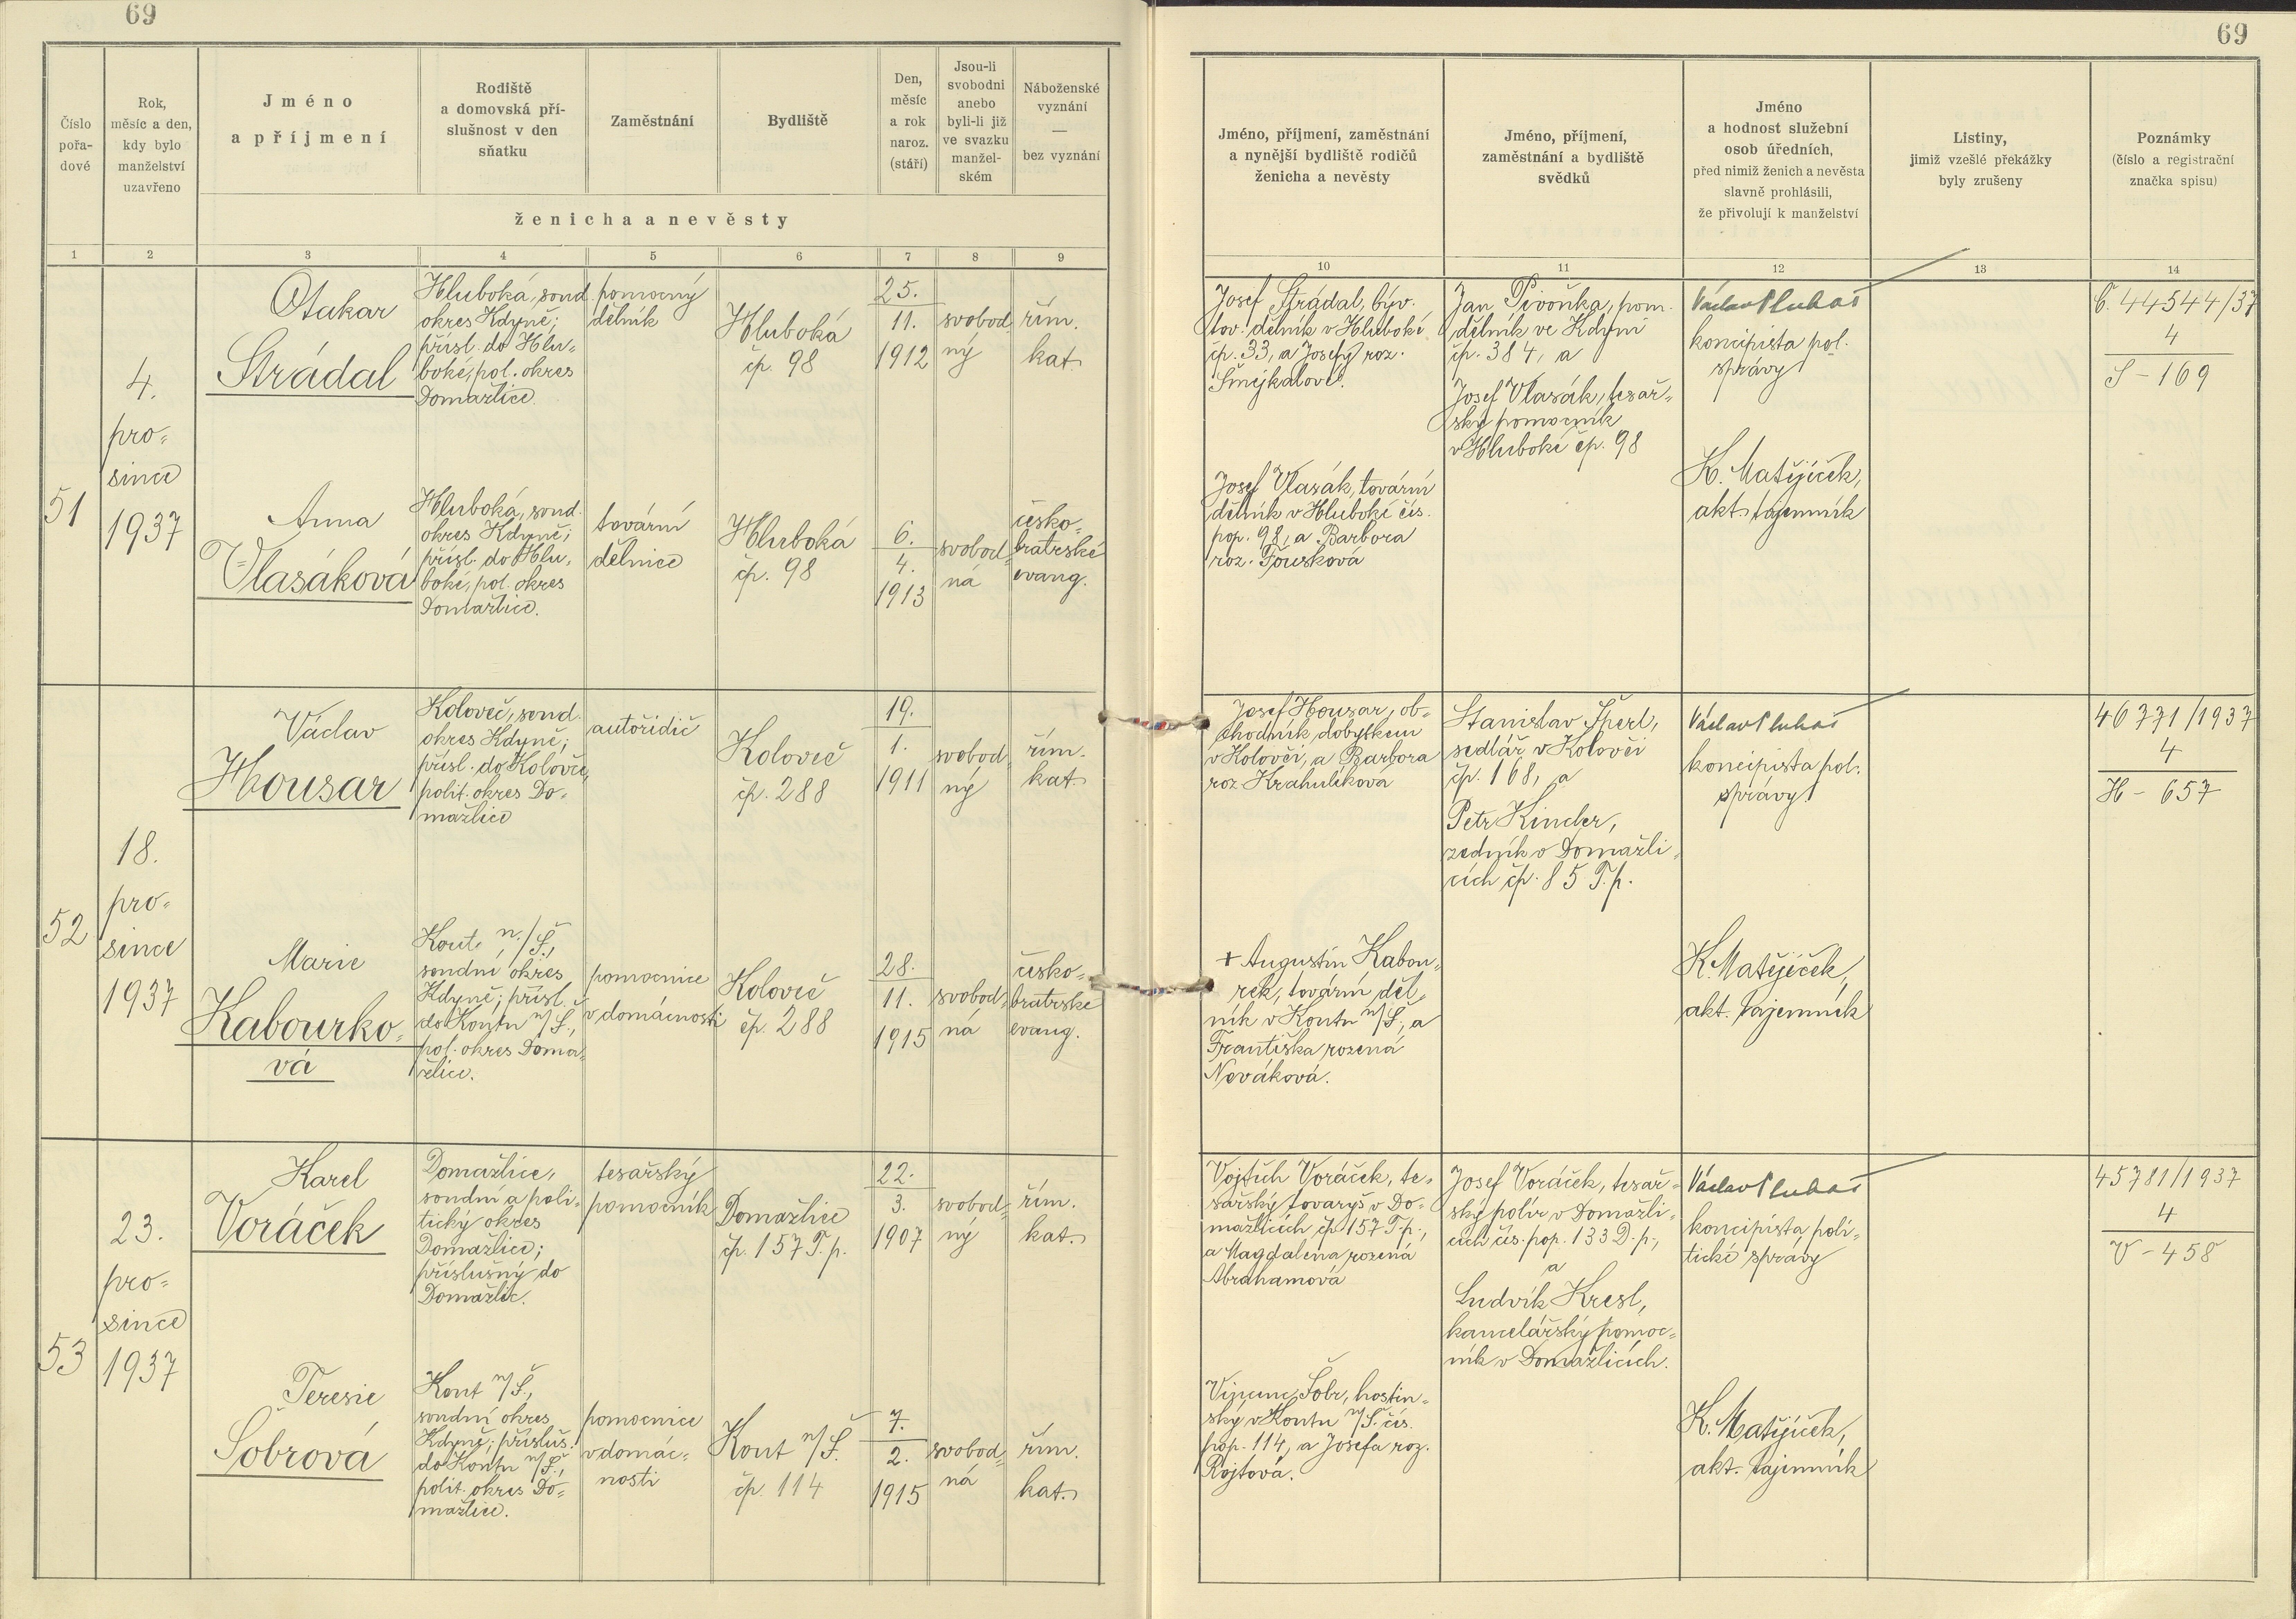 69
69
Číslo
pořa-
dové
Rok,
měsíc a den,
kdy bylo
manželství
uzavřeno
Jméno
a příjmení
Rodiště
a domovská pří-
slušnost v den
sňatku
Zaměstnání
Bydliště
Den,
měsíc
a rok
naroz.
(stáří)
Jsou-li
svobodni
anebo
byli-li již
ve svazku
manžel-
ském
Náboženské
vyznání
—
bez vyznání
ženicha a nevěsty
Jméno, příjmení, zaměstnání
a nynější bydliště rodičů
ženicha a nevěsty
Jméno, příjmení,
zaměstnání a bydliště
svědků
Jméno
a hodnost služební
osob úředních,
před nimiž ženich a nevěsta
slavně prohlásili,
že přivolují k manželství
Listiny,
jimiž vzešlé překážky
byly zrušeny
Poznámky
(číslo a registrační
značka spisu)
1 2 3 4 5 6 7 8 9 10 11 12 13 14
51
4.
pro-
since
1937
Otakar
Strádal
Hluboká, soud.
okres Kdyně;
přísl. do Hlu-
boké, pol. okres
Domažlice.
pomocný
dělník
Hluboká
čp. 98
25.
11.
1912
svobod-
ný
řím.
kat.
Josef Strádal, býv.
tov. dělník v Hluboké
čp. 33, a Josefy roz.
Šmýkalové.
Jan Pivoňka, pom.
dělník ve Kdyni
čp. 384, a
Josef Vlasák, tesař-
ský pomocník
v Hluboké čp. 98
Václav Pluhař
koncipista pol.
správy
Č. 44544/37
4
S - 169
Anna
Vlasáková
Hluboká, soud.
okres Kdyně;
přísl. do Hlu-
boké, pol. okres
Domažlice.
tovární
dělnice
Hluboká
čp. 98
6.
4.
1913
svobod-
ná
česko-
bratrské
evang.
Josef Vlasák, tovární
dělník v Hluboké čís.
pop. 98, a Barbora
roz. Fousková
K. Matějíček,
akt. tajemník
52
18.
pro-
since
1937
Václav
Housar
Koloveč, soud.
okres Kdyně;
přísl. do Kolovče,
polit. okres Do-
mažlice
autořidič
Koloveč
čp. 288
19.
1.
1911
svobod-
ný
řím.
kat.
Josef Housar, ob-
chodník dobytkem
v Kolovči, a Barbora
roz. Krahulíková
Stanislav Šperl,
sedlář v Kolovči
čp. 168, a
Petr Kinder,
zedník v Domažli-
cích čp. 85 T. p.
Václav Pluhař
koncipista pol.
správy
46771/1937
4
H - 657
Marie
Kabourko-
vá
Kout n/Š.,
soudní okres
Kdyně; přísl.
do Koutu n/Š.,
pol. okres Doma-
žlice.
pomocnice
v domácnosti
Koloveč
čp. 288
28.
11.
1915
svobod-
ná
česko-
bratrské
evang.
+ Augustin Kabou-
rek, tovární děl-
ník v Koutu n/Š., a
Františka rozená
Nováková.
K. Matějíček,
akt. tajemník
53
23.
pro-
since
1937
Karel
Voráček
Domažlice,
soudní a poli-
tický okres
Domažlice;
příslušný do
Domažlic.
tesařský
pomocník
Domažlice
čp. 157 T. p.
22.
3.
1907
svobod-
ný
řím.
kat.
Vojtěch Voráček, te-
sařský tovaryš v Do-
mažlicích čp. 157 T. p.,
a Magdalena rozená
Abrahamová
Josef Voráček, tesař-
ský polír v Domažli-
cích čís. pop. 133 D. p.,
a
Ludvík Kresl,
kancelářský pomoc-
ník v Domažlicích.
Václav Pluhař
koncipista poli-
tické správy
45781/1937
4
V - 458
Teresie
Šobrová
Kout n/Š.,
soudní okres
Kdyně; přísluš.
do Koutu n/Š.,
polit. okres Do-
mažlice.
pomocnice
v domác-
nosti
Kout n/Š.
čp. 114
7.
2.
1915
svobod-
ná
řím.
kat.
Vincenc Šobr, hostin-
ský v Koutu n/Š. čís.
pop. 114, a Josefa roz.
Rojtová.
K. Matějíček,
akt. tajemník